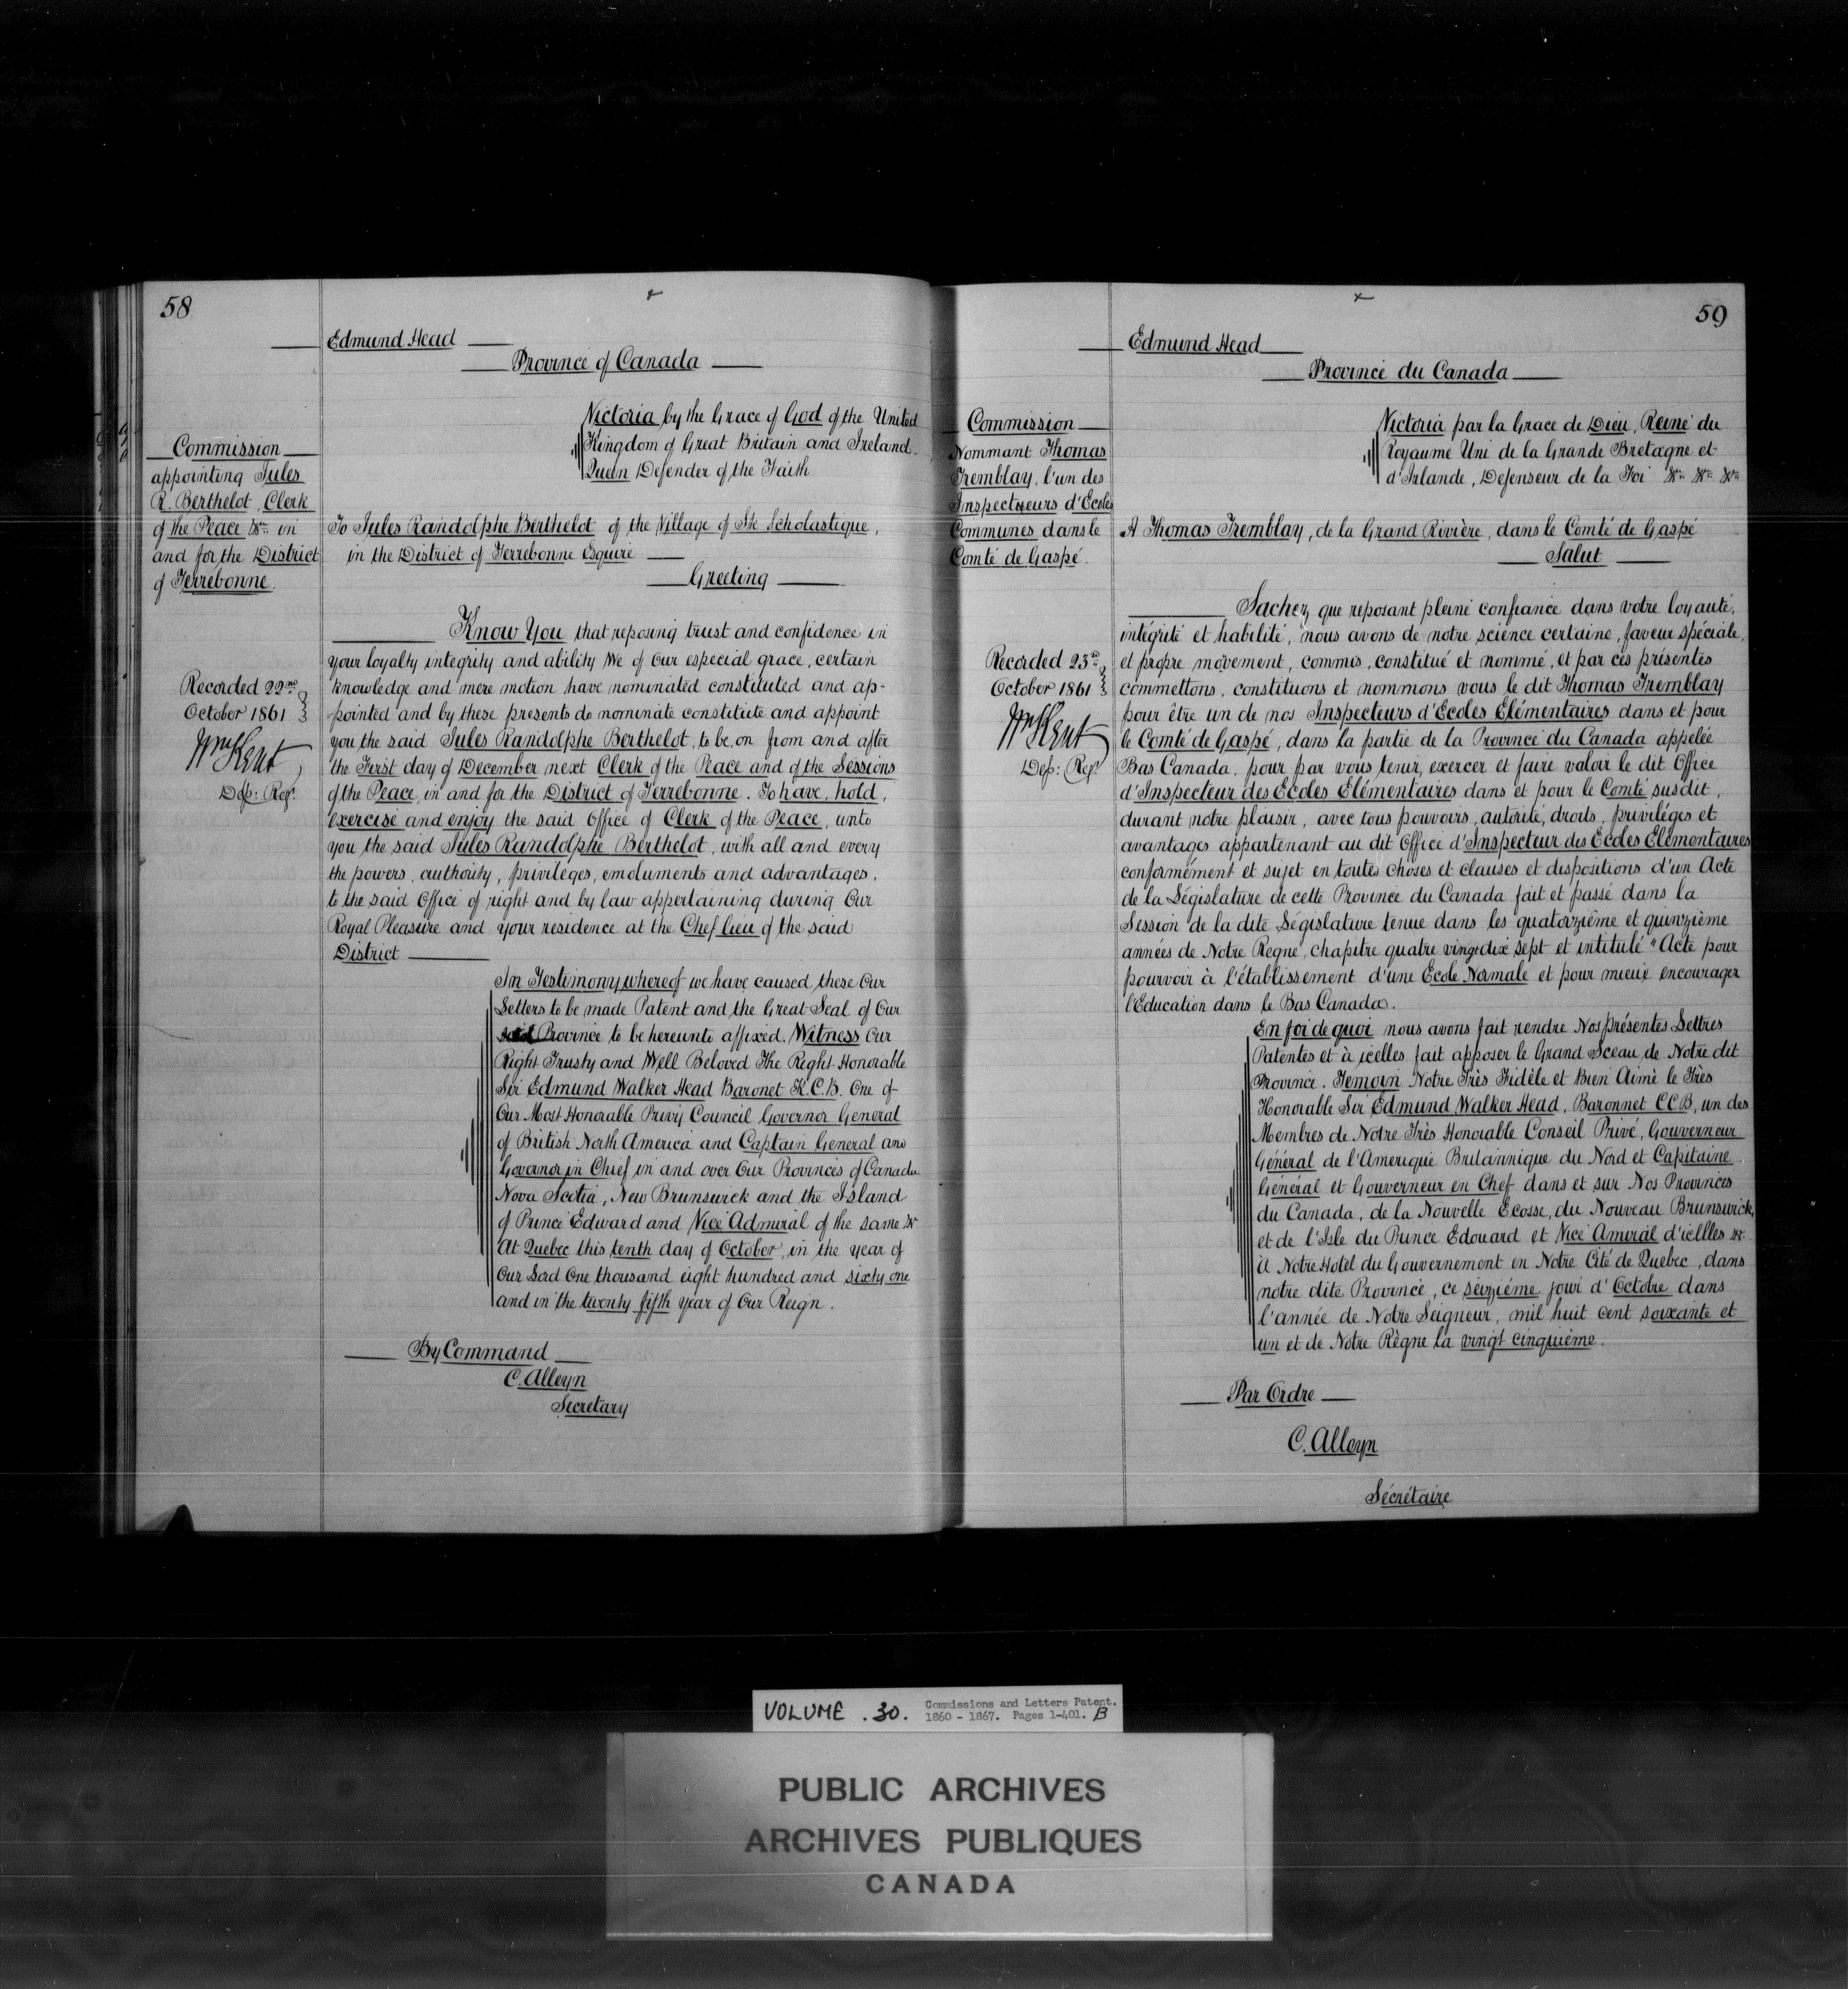 58
Edmund Head
Province of Canada
Victoria by the Grace of God of the United
Kingdom of Great Britain and Ireland,
Queen Defender of the Faith
Commission
appointing Jules
R. Berthelot, Clerk
of the Peace &c. in
and for the District
of Terrebonne.
To Jules Randolphe Berthelot of the Village of Ste Scholastique,
in the District of Terrebonne Esquire
Greeting
Recorded 22nd
October 1861
Wm Kent
Dep: Reg.
Know You that reposing trust and confidence in
your loyalty integrity and ability We of Our especial grace, certain
knowledge and mere motion have nominated constituted and ap-
pointed and by these presents do nominate constitute and appoint
you the said Jules Randolphe Berthelot, to be, on from and after
the First day of December next Clerk of the Peace and of the Sessions
of the Peace, in and for the District of Terrebonne. To have, hold,
exercise and enjoy the said Office of Clerk of the Peace, unto
you the said Jules Randolphe Berthelot, with all and every
the powers, authority, privileges, emoluments and advantages,
to the said Office of right and by law appertaining during Our
Royal Pleasure and your residence at the Chef lieu of the said
District
In Testimony whereof we have caused these Our
Letters to be made Patent and the Great Seal of Our
said Province to be hereunto affixed. Witness Our
Right Trusty and Well Beloved The Right Honorable
Sir Edmund Walker Head Baronet K.C.B. One of
Our Most Honorable Privy Council Governor General
of British North America and Captain General and
Governor in Chief in and over Our Provinces of Canada
Nova Scotia, New Brunswick and the Island
of Prince Edward and Vice Admiral of the same &c
At Quebec this tenth day of October, in the year of
Our Lord One thousand eight hundred and sixty one
and in the twenty fifth year of Our Reign.
By Command
C. Alleyn
Secretary
59
Edmund Head
Province du Canada
Victoria par la Grace de Dieu, Reine du
Royaume Uni de la Grande Bretagne et
d'Irlande, Defenseur de la Foi &c. &c. &c.
Commission
Nommant Thomas
Tremblay, l'un des
Inspecteurs d'Ecoles
Communes dans le
Comté de Gaspé.
A Thomas Tremblay, de la Grand Rivière, dans le Comté de Gaspé
Salut
Recorded 23rd
October 1861
Wm Kent
Dep: Reg.
Sachez que reposant pleine confiance dans votre loyauté,
intégrité et habilité, nous avons de notre science certaine, faveur spéciale,
et propre movement, commis, constitué et nommé, et par ces présentes
commettons, constituons et nommons vous le dit Thomas Tremblay
pour être un de nos Inspecteurs d'Ecoles Elémentaires dans et pour
le Comté de Gaspé, dans la partie de la Province du Canada appelée
Bas Canada, pour par vous tenir, exercer et faire valoir le dit Office
d'Inspecteur des Ecoles Elémentaires dans et pour le Comté susdit,
durant notre plaisir, avec tous pouvoirs, autorité, droits, priviléges et
avantages appartenant au dit Office d'Inspecteur des Ecoles Elémentaires
conformément et sujet en toutes choses et clauses et dispositions d'un Acte
de la Législature de cette Province du Canada fait et passé dans la
Session de la dite Législature tenue dans les quatorzième et quinzième
années de Notre Regne, chapitre quatre vingt dix sept et intitulé "Acte pour
pourvoir à l'établissement d'une Ecole Normale et pour mieux encourager
l'Education dans le Bas Canada.
En foi de quoi nous avons fait rendre Nos présentes Lettres
Patentes et à icelles fait apposer le Grand Sceau de Notre dit
Province. Temoin Notre Très Fidèle et Bien Aimé le Très
Honorable Sir Edmund Walker Head, Baronnet CCB, un des
Membres de Notre Très Honorable Conseil Privé, Gouverneur
Général de l'Amerique Britannique du Nord et Capitaine
Général et Gouverneur en Chef dans et sur Nos Provinces
du Canada, de la Nouvelle Ecosse, du Nouveau Brunswick,
et de l'Isle du Prince Edouard et Vice Amiral d'icelles &c.
à Notre Hotel du Gouvernement en Notre Cité de Quebec, dans
notre dite Province, ce seizième jour d'Octobre dans
l'année de Notre Seigneur, mil huit cent soixante et
un et de Notre Règne la vingt cinquième.
Par Ordre
C. Alleyn
Sécrétaire
VOLUME . 30. Commissions and Letters Patent.
1860 - 1867. Pages 1-401. B
PUBLIC ARCHIVES
ARCHIVES PUBLIQUES
CANADA